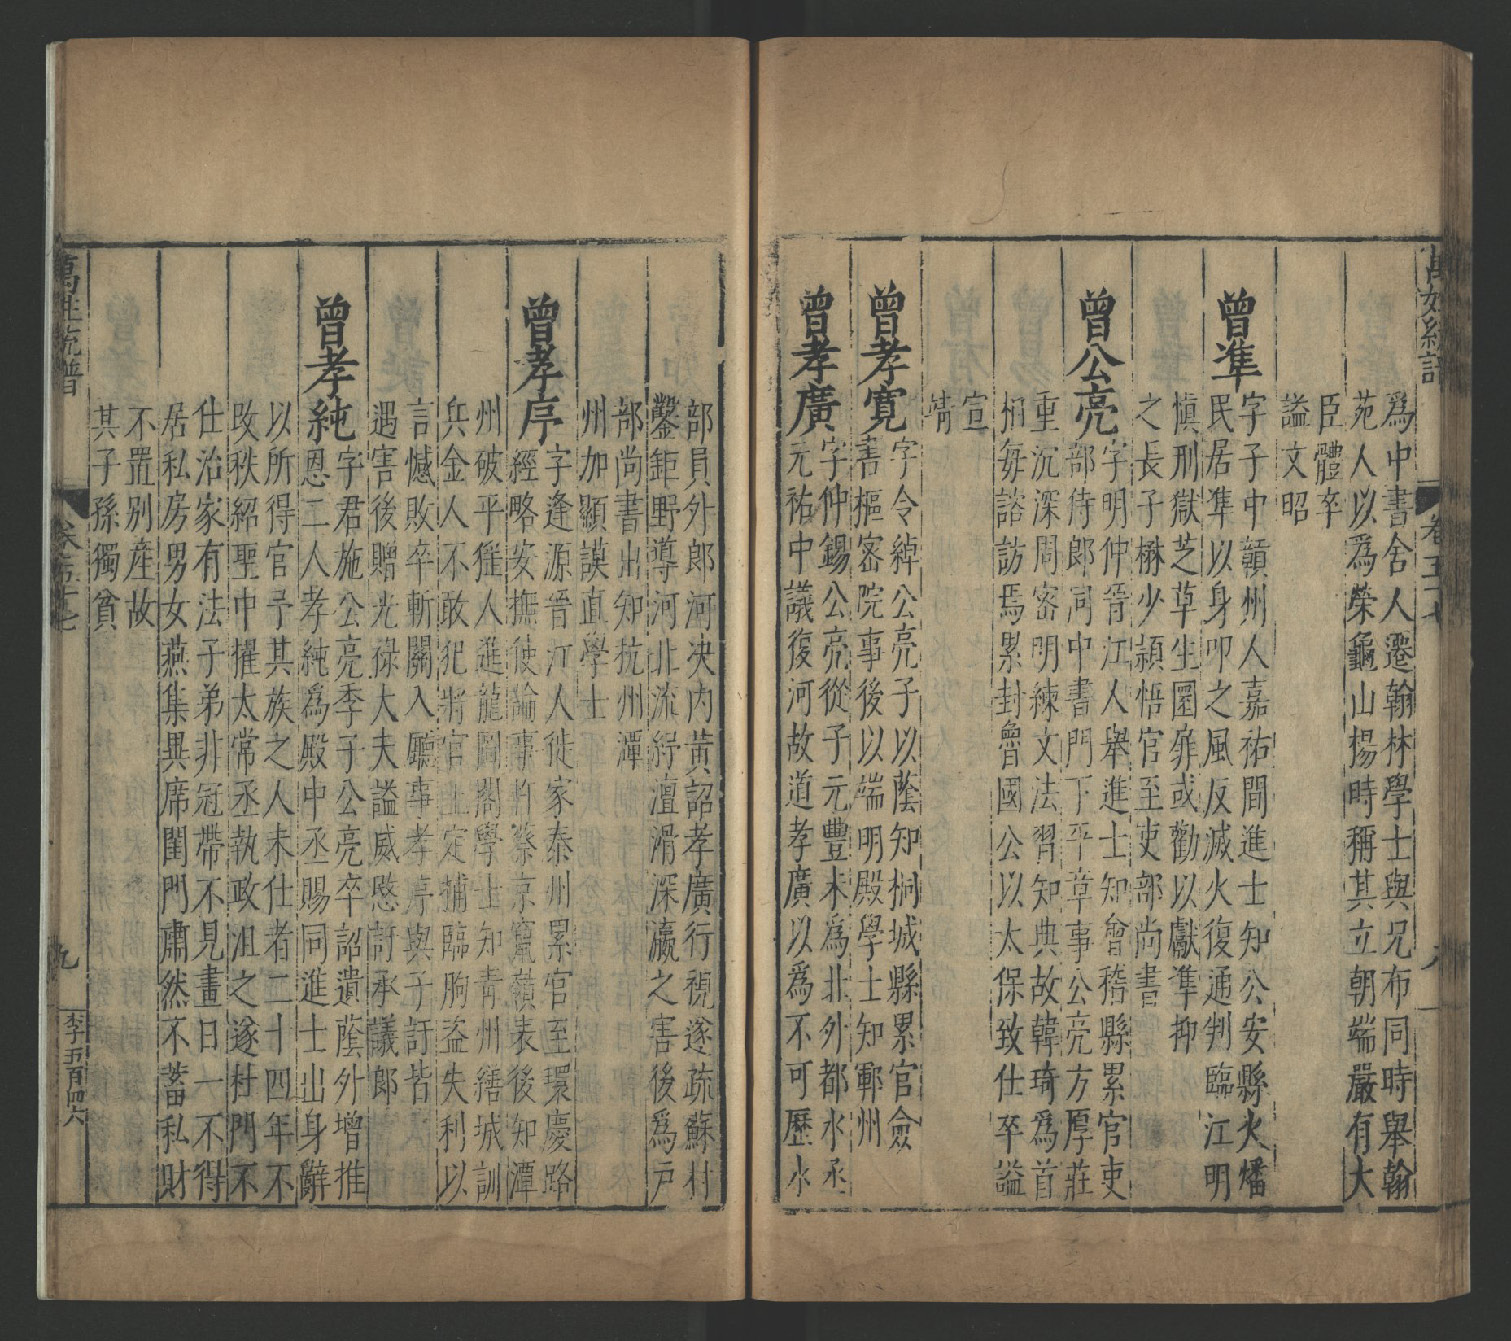 爲中書舍人遷翰林學士與兄布同時舉翰
苑人以爲榮龜山楊時稱其立朝端嚴有大
臣體卒
謚文昭
曾準
字子中贑州人嘉祐間進士知公安縣火燔
民居準以身叩之風反滅火復通判臨江明
愼刑獄芝草生圜扉或勸以獻準抑
之長子楙少頴悟官至吏部尚書
曾公亮
字明仲晉江人舉進士知會稽縣累官吏
部侍郎同中書門下平章事公亮方厚莊
重沉深周密明練文法習知典故韓琦爲首
相每諮訪焉累封魯國公以太保致仕卒謚
宣
靖
曾孝寛
字令綽公亮子以蔭知桐城縣累官僉
書樞密院事後以端明殿學士知鄆州
曾孝廣
字仲錫公亮從子元豐末爲北外都水丞
元祐中議復河故道孝廣以爲不可歷水
部員外郎河决内黄詔孝廣行視遂疏蘇村
鑿鉅野導河北流紓澶滑深瀛之害後爲戸
部尚書出知杭州潭
州加顯謨直學士
曾孝序
字逢源晉江人徙家泰州累官至環慶路
經略安撫使論事忤蔡京竄嶺表後知潭
州破平猺人進龍圖閣學士知青州繕城訓
兵金人不敢犯將官王定捕臨朐盗失利以
言憾敗卒斬關入廳事孝序與子訏皆
遇害後贈光禄大夫謚威愍訏承議郎
曾孝純
字君施公亮季子公亮卒詔遺蔭外增推
恩二人孝純爲殿中丞賜同進士出身辭
以所得官予其族之人未仕者二十四年不
攺秩紹聖中擢太常丞執政沮之遂杜門不
仕治家有法子弟非冠帶不見晝日一不得
居私房男女燕集異席閨門肅然不蓄私財
不置别産故
其子孫獨貧
萬姓統譜
卷五十七
九
李五百四六